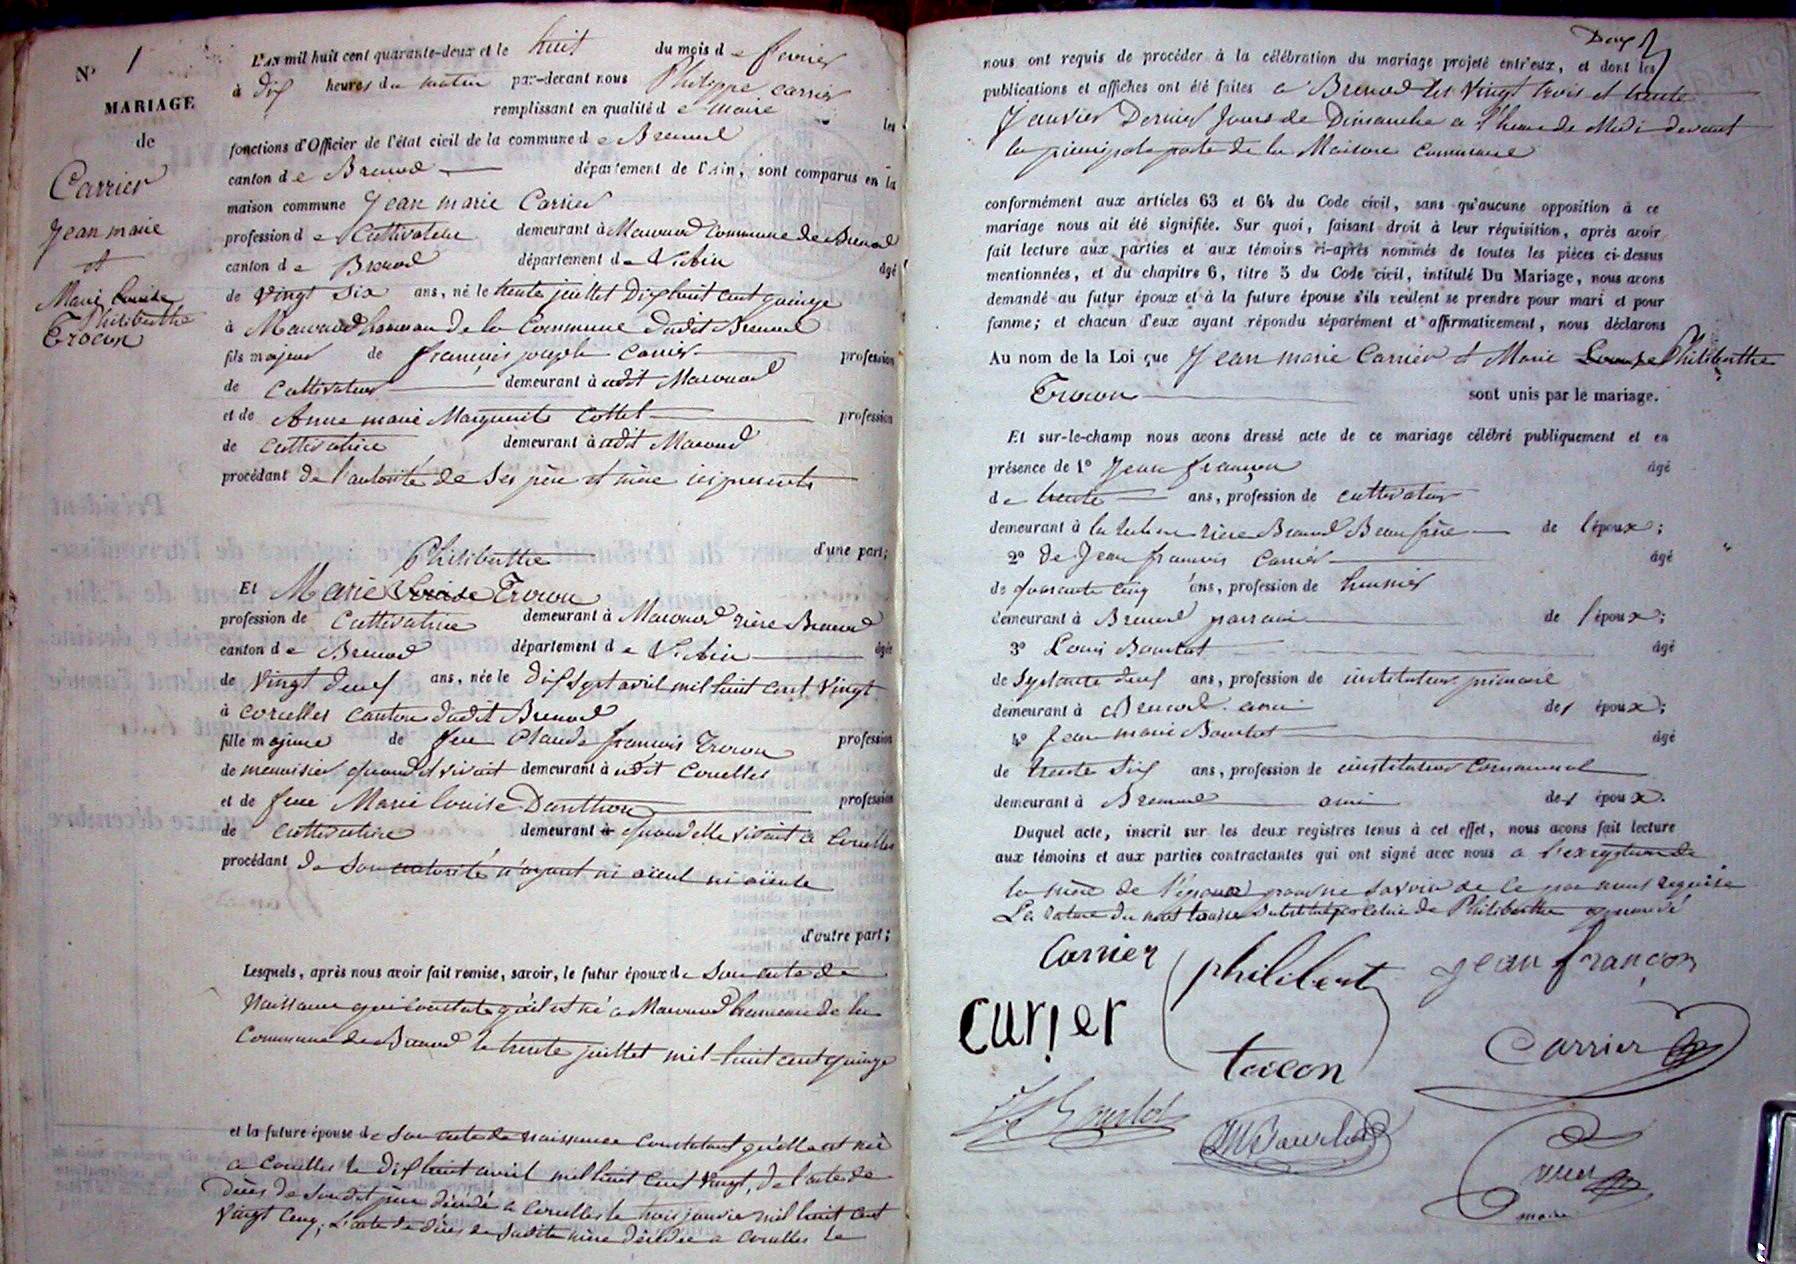 N° 1
MARIAGE
de
Carrier
Jean marie
et
Marie Louise
Philiberthe
Trocon
L'AN mil huit cent quarante-deux et le huit du mois de fevrier
à dix heures du matin par-devant nous Philippe carrier
remplissant en qualité de maire les
fonctions d'Officier de l'état civil de la commune de Brenod
canton de Brenod département de l'Ain, sont comparus en la
maison commune Jean marie Carrier
profession de Cultivateur demeurant à Macconod Commune de Brenod
canton de Brenod département de L'Ain âgé
de vingt six ans, né le trente juillet Dix huit cent quinze
à Macconod hameau de la Commune dudit Brenod
fils majeur de françois joseph Carrier profession
de Cultivateur demeurant à udit Macconod
et de Anne marie Marguerite Cottet profession
de cultivatrice demeurant à udit Macconod
procédant de l'autorité de ses père et mère ici presents
d'une part;
Philiberthe
Et Marie Louise Trocon
profession de Cultivatrice demeurant à Macconod rière Brenod
canton de Brenod département de L'Ain âgée
de vingt deux ans, née le dix sept avril mil huit cent vingt
à corcelles canton dudit Brenod
fille majeure de feu Claude françois Trocon profession
de menuisier quand il vivait demeurant à udit Corcelles
et de feue Marie Louise Danthon profession
de cultivatrice demeurant à quand elle vivait a Corcelles
procédant de son autorité n'ayant ni aieul ni aïeule
d'autre part;
Lesquels, après nous avoir fait remise, savoir, le futur époux de Son acte de
Naissance qui constate qu'il est né a Macconod hameau de la
Commune de Brenod le trente juillet mil-huit cent quinze
et la future épouse de son acte de naissance constatant qu'elle est née
a Corcelles le dix huit avril mil huit cent vingt, de l'acte de
décès de sondit père décédé a Corcelles le trois janvier mil huit cent
vingt cinq; L'acte de décès de sadite mère décédée a Corcelles le
Deux
nous ont requis de procéder à la célébration du mariage projeté entr'eux, et dont les
publications et affiches ont été faites a Brenod les vingt trois et trente
Janvier Dernier Jours de Dimanche a l'heure de Midi devant
la principale porte de la Maison commune
conformément aux articles 63 et 64 du Code civil, sans qu'aucune opposition à ce
mariage nous ait été signifiée. Sur quoi, faisant droit à leur réquisition, après avoir
fait lecture aux parties et aux témoins ci-après nommés de toutes les pièces ci-dessus
mentionnées, et du chapitre 6, titre 5 du Code civil, intitulé Du Mariage, nous avons
demandé au futur époux et à la future épouse s'ils veulent se prendre pour mari et pour
femme; et chacun d'eux ayant répondu séparément et affirmativement, nous déclarons
Au nom de la Loi que Jean marie Carrier et Marie Louise Philiberthe
Trocon sont unis par le mariage.
Et sur-le-champ nous avons dressé acte de ce mariage célébré publiquement et en
présence de 1° Jean françon âgé
de trente ans, profession de cultivateur
demeurant à rière Brenod Beau frère de l'époux;
2° de Jean francois Carrier âgé
de quarante cinq ans, profession de huissier
demeurant à Brenod parrain de l'époux;
3° Louis Bourlot âgé
de Septante deux ans, profession de instituteur primaire
demeurant à Brenod ami des époux;
4° Jean marie Bourlot âgé
de trente six ans, profession de instituteur Communal
demeurant à Brenod ami des époux.
Duquel acte, inscrit sur les deux registres tenus à cet effet, nous avons fait lecture
aux témoins et aux parties contractantes qui ont signé avec nous a l'exception de
la mère de l'époux pour ne savoir de ce par nous requise
La rature du mot Louise substitué par celui de Philiberthe approuvé
Carrier
philibert
Jean françon
carier
trocon
Carrier
Bourlot
JM Bourlot
maire